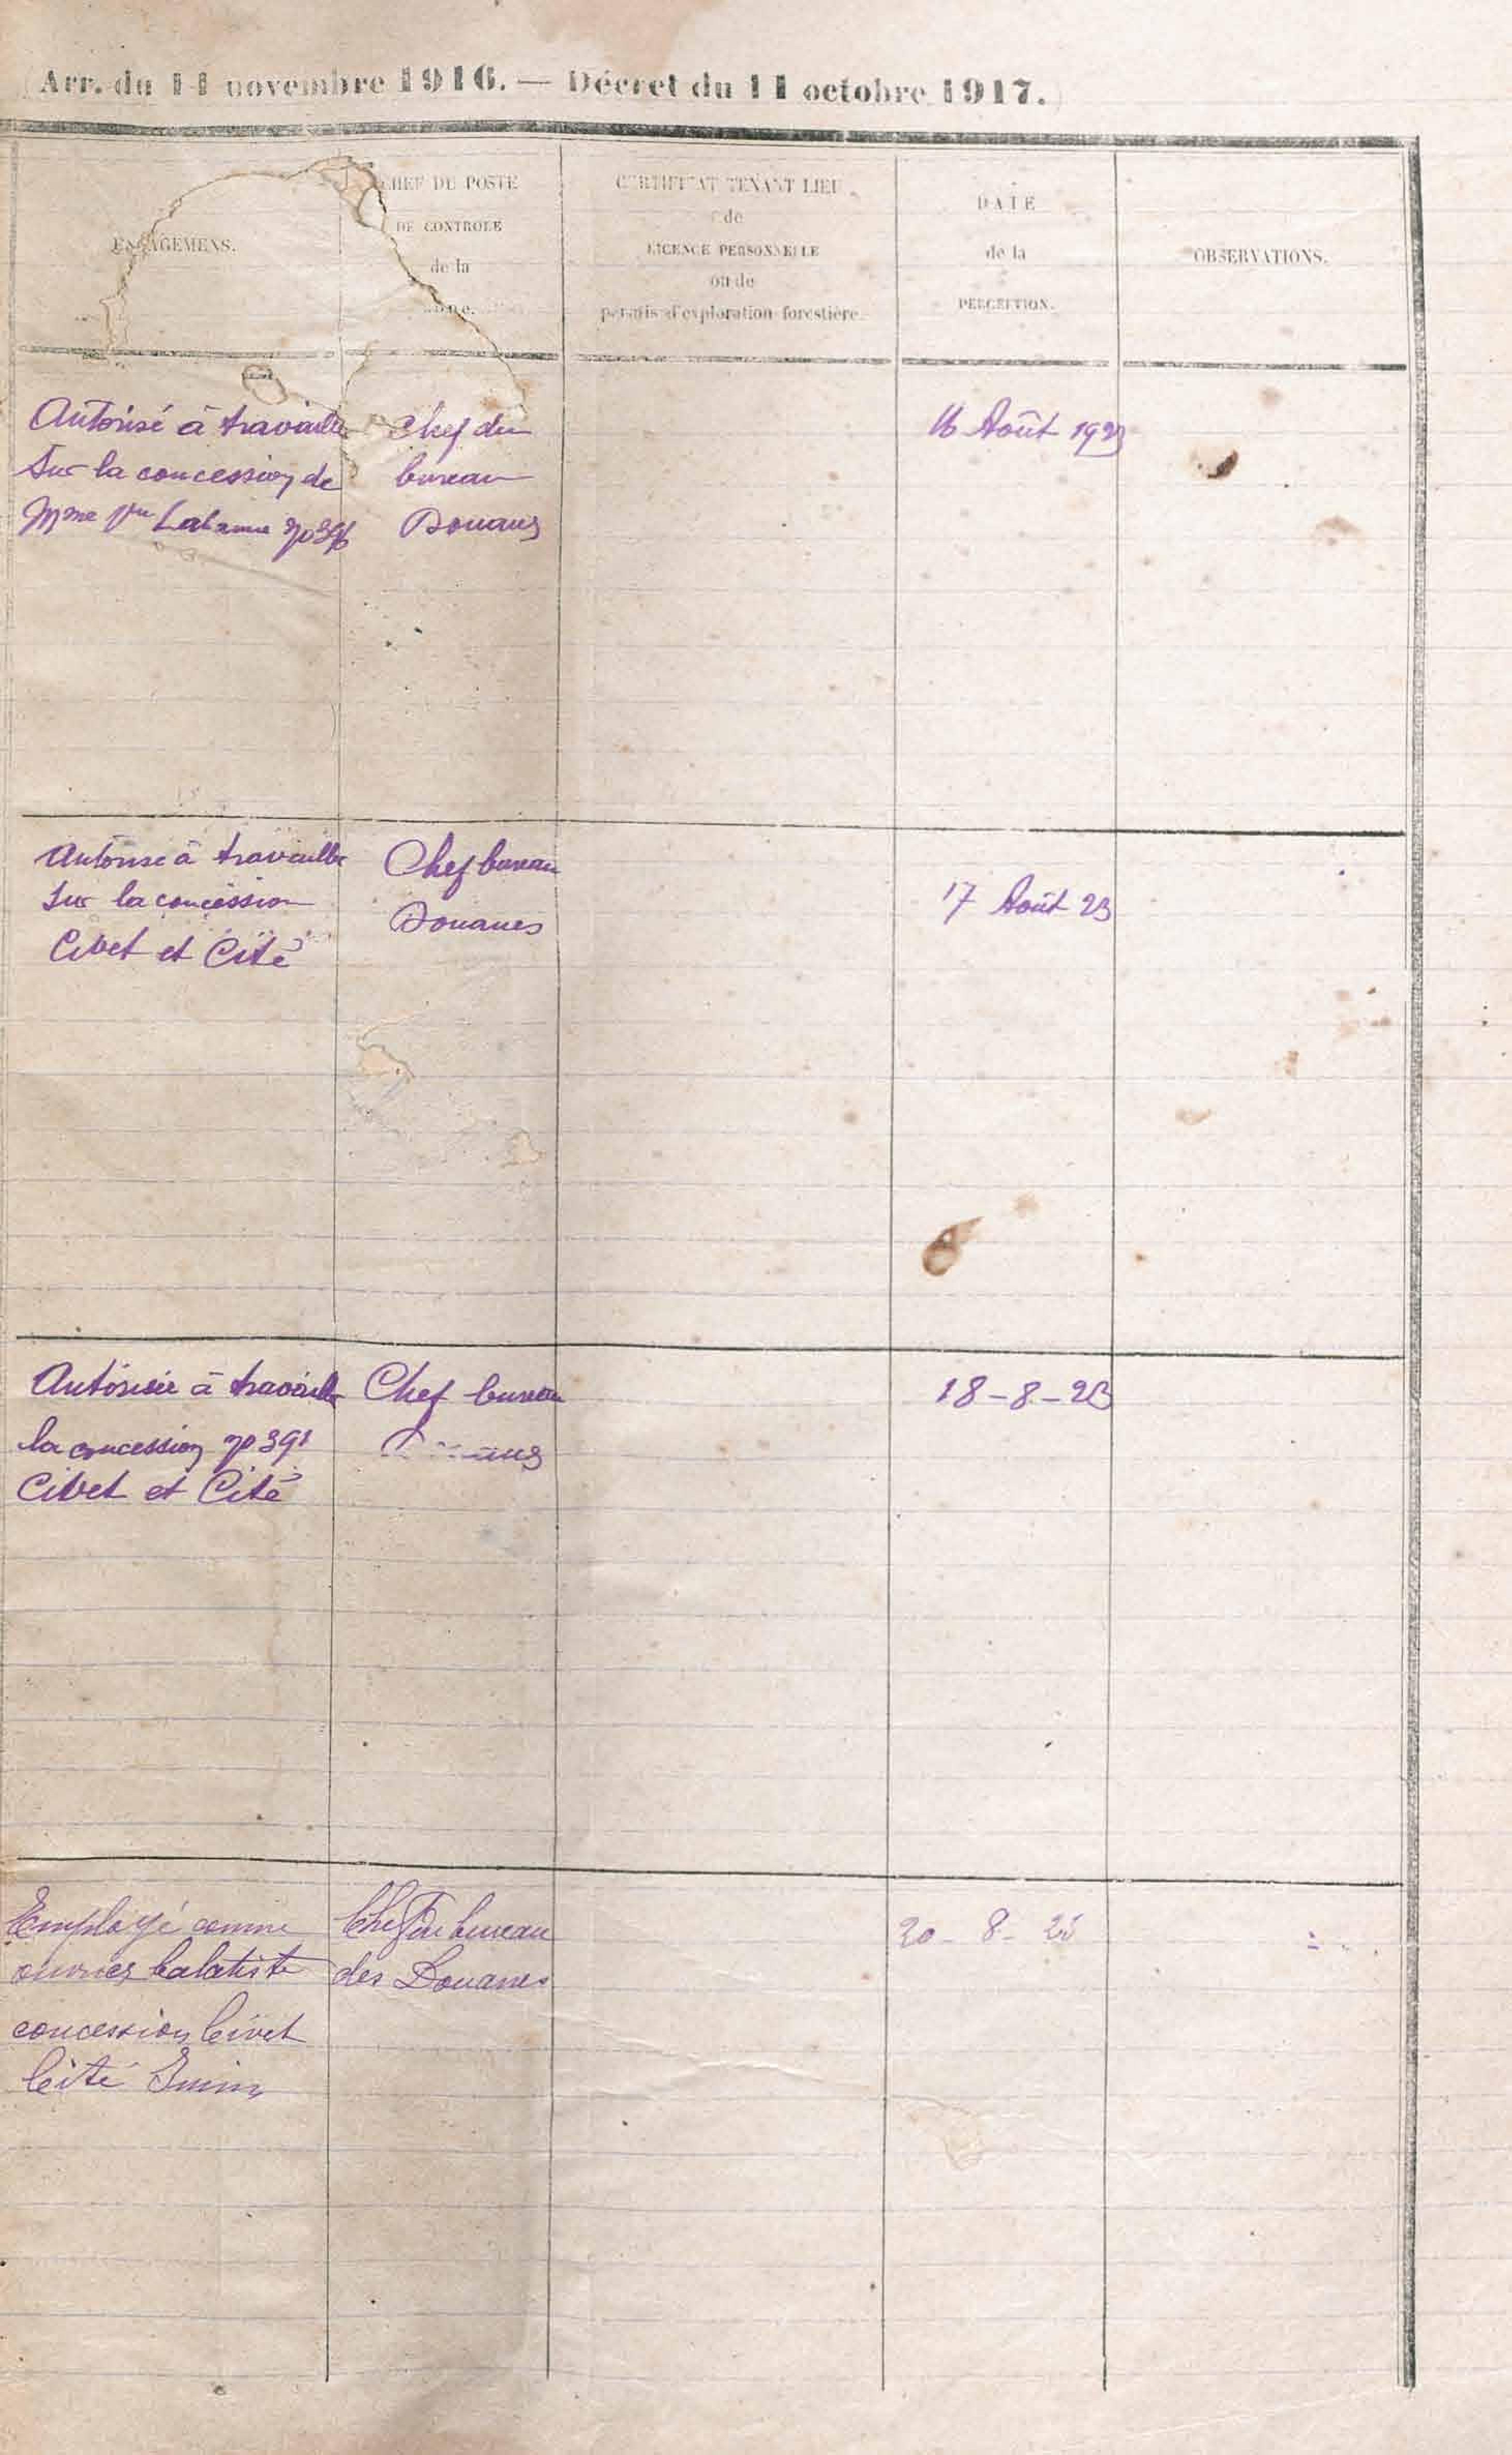 (Arr. du 11 novembre 1916. — Décret du 11 octobre 1917.)
ENGAGEMENS.
CHEF DE POSTE
DE CONTROLE
de la
CERTIFICAT TENANT LIEU
de
LICENCE PERSONNELLE
ou de
permis d'exploration forestière.
DATE
de la
PERCEPTION.
OBSERVATIONS.
Autorisé à travailler
Sur la concession de
Mme Vve
Chef du
bureau
Douanes
16 Août 1923
Autorisé à travailler
Sur la concession
Civet et Cité
Chef bureau
Douanes
17 Août 23
Autorisée à travailler
la concession no 391
Civet et Cité
Chef bureau
18-8-23
Employé comme
ouvrier balatiste
concession Civet
Cité Inini
Chef du bureau
des Douanes
20-8-23